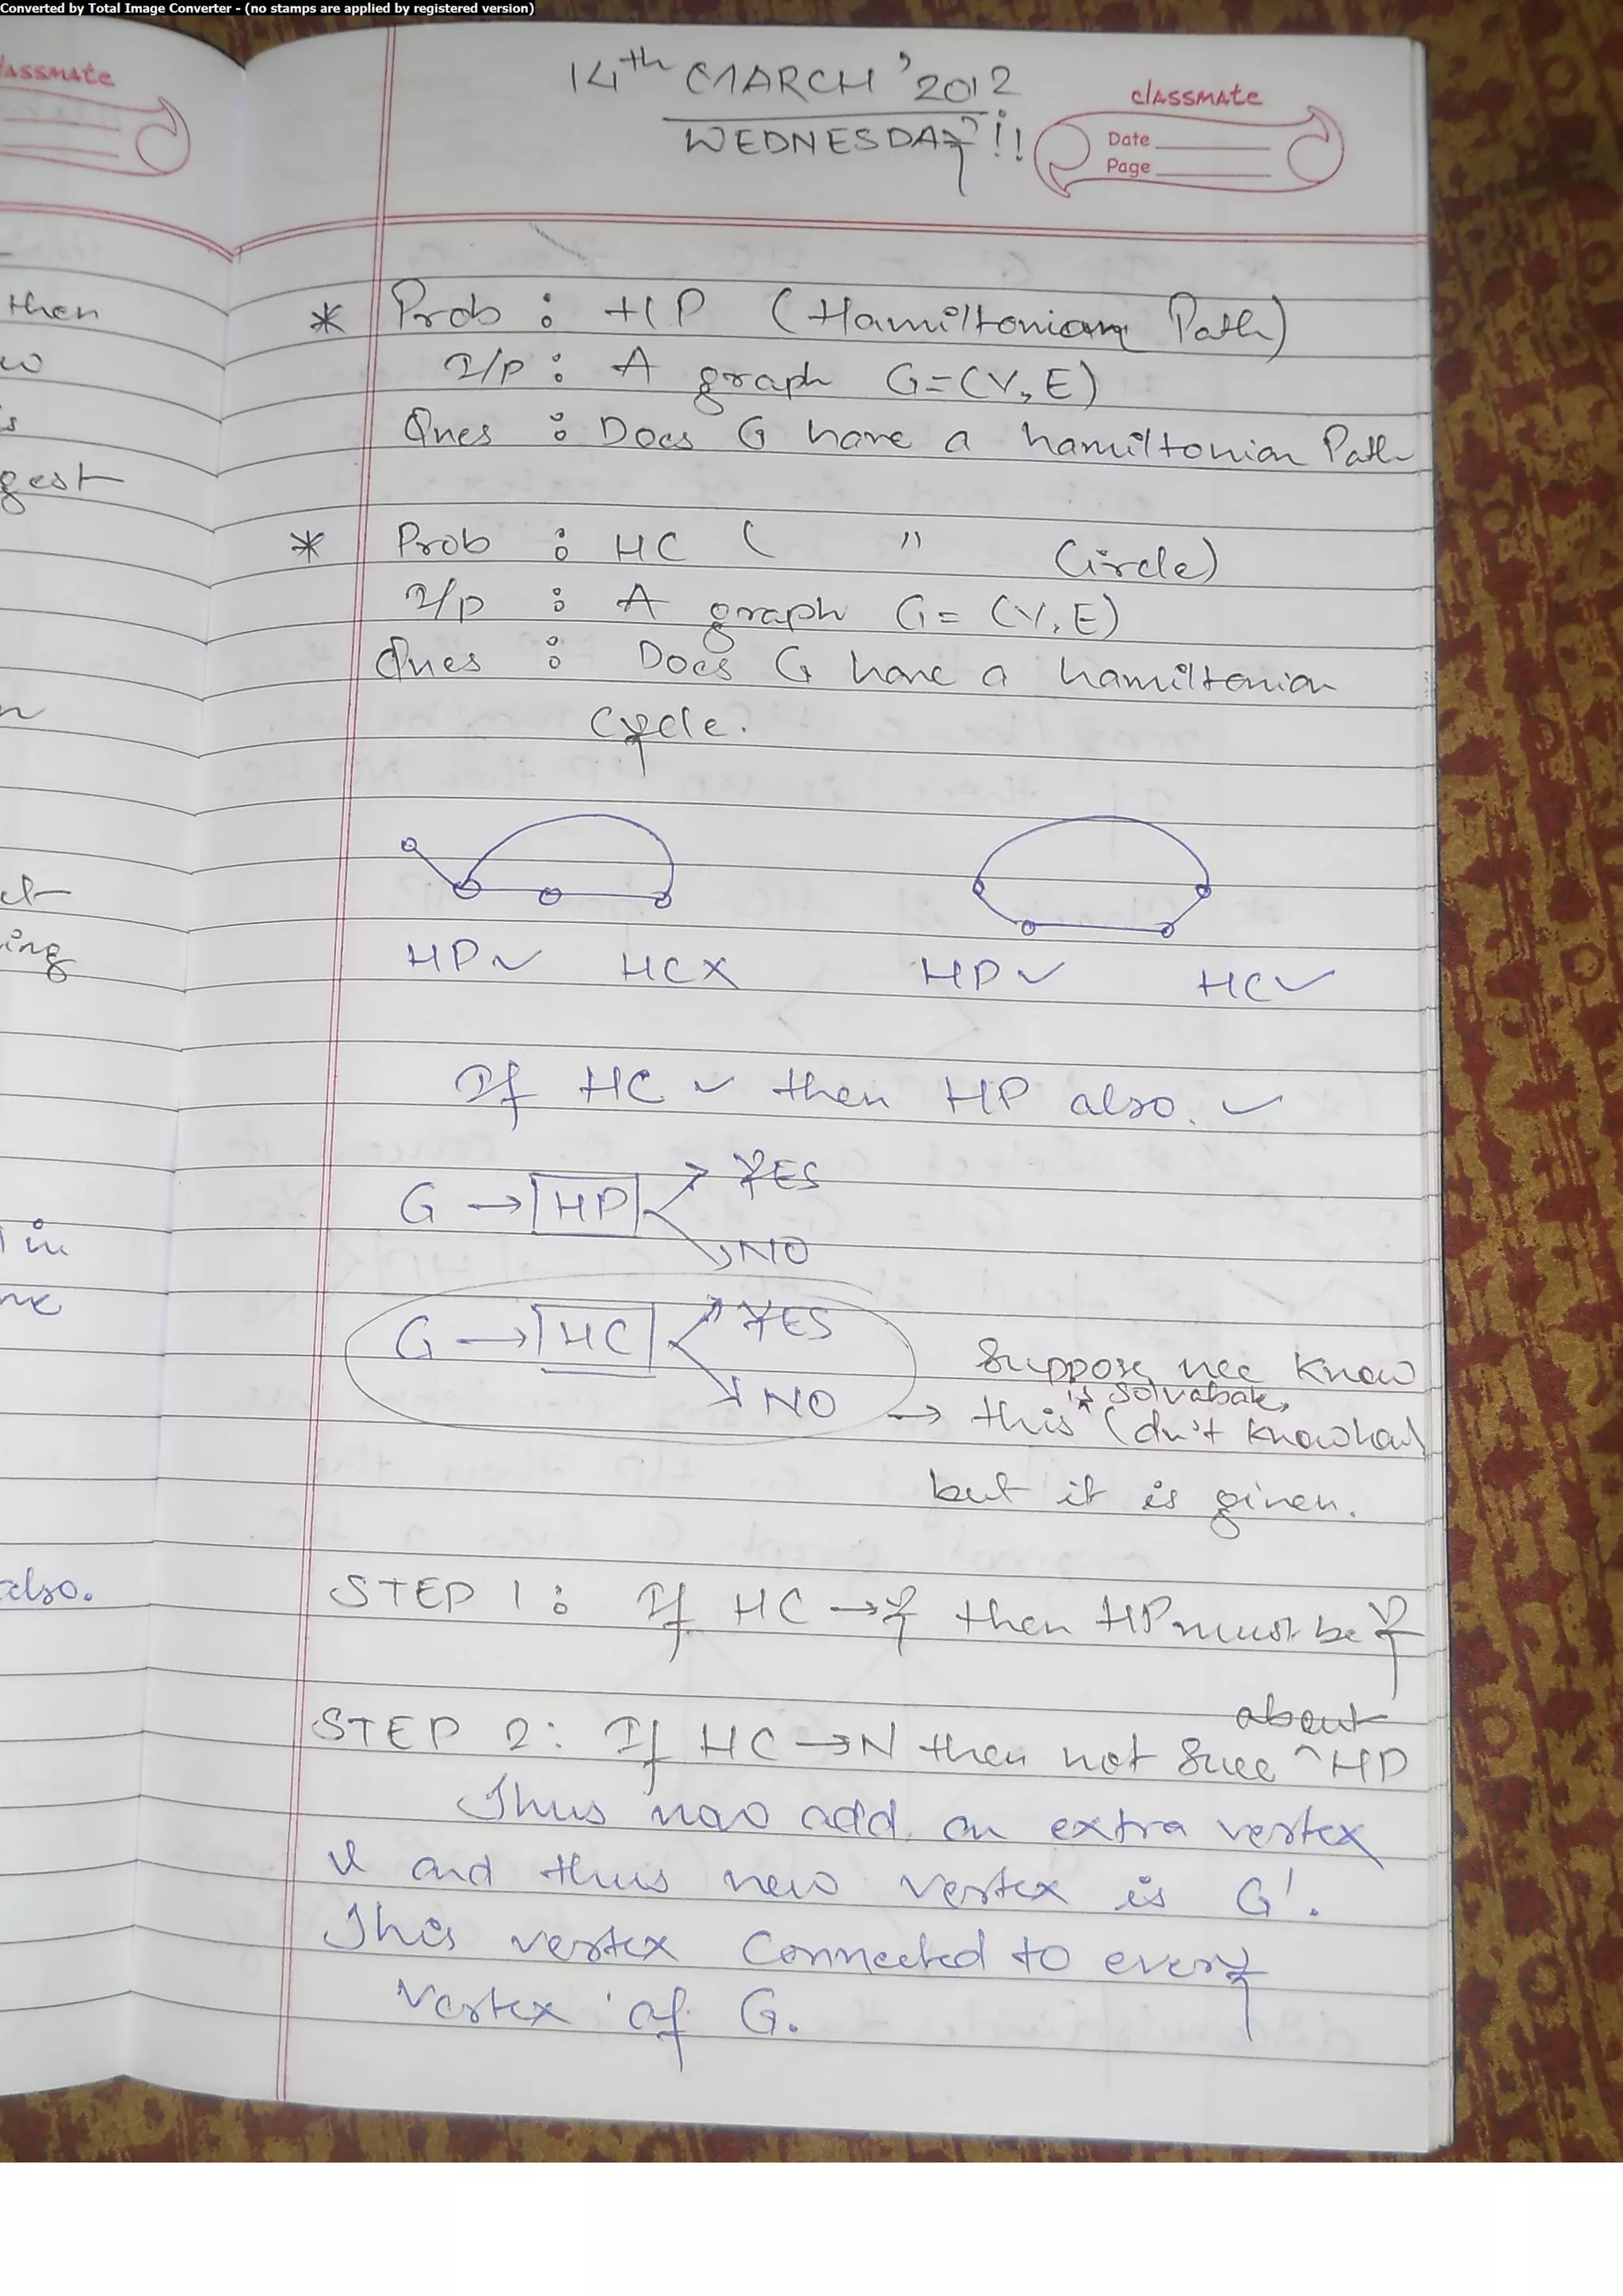 Converted by Total Image Converter - (no stamps are applied by registered version)
14th MARCH '2012
WEDNESDAY !!
classmate
Date
Page
* Prob : HP (Hamiltonian Path)
I/p : A graph G=(V,E)
Ques : Does G have a hamiltonian Path
* Prob : HC ( " Circle)
I/p : A graph G= (V,E)
Ques : Does G have a hamiltonian
cycle.
HP✓ HC✗ HP✓ HC✓
If HC ✓ then HP also. ✓
G → HP YES
NO
G → HC YES
NO
Suppose we know
is solvabale,
→ this ^ (dn't know how
but it is given.
STEP 1 : If HC → Y then HP must be Y
about
STEP 2 : If HC → N then not sure ^ HP
Thus now add an extra vertex
v and thus new vertex is G'.
This vertex connected to every
vertex of G.
lassmate
then
w
s
gest
n
ing
in
also.